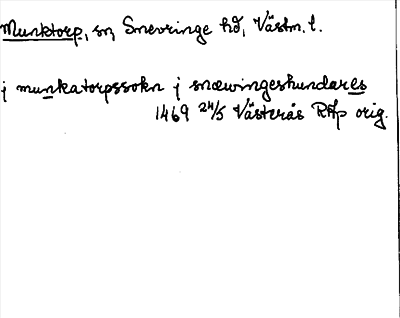 Munktorp, sn, Snevringe hd, Västm. l.
j munkatorpssokn j snœwingeshundares
1469 24/5 Västerås RAp orig.